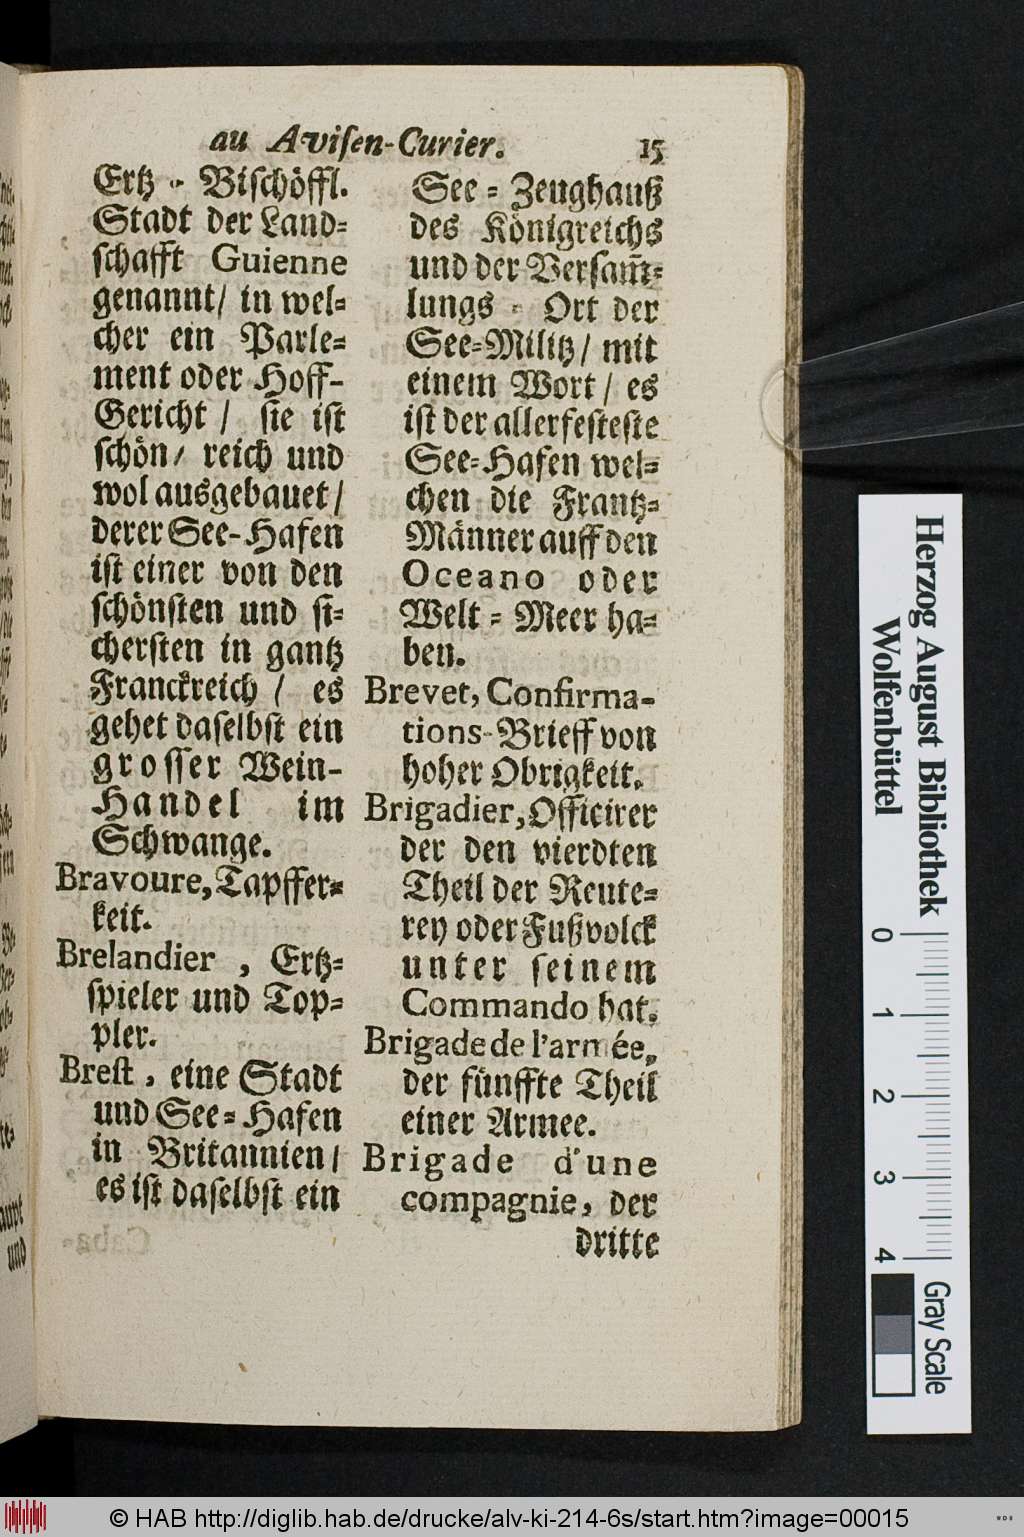 au Aviſen-Curier. 15
Ertz-Biſchöffl.
Stadt der Land-
ſchafft Guienne
genannt/ in wel-
cher ein Parle-
ment oder Hoff-
Gericht / ſie iſt
ſchön/ reich und
wol ausgebauet/
derer See-Hafen
iſt einer von den
ſchönſten und ſi-
cherſten in gantz
Franckreich / es
gehet daſelbſt ein
groſſer Wein-
Handel im
Schwange.
Bravoure, Tapffer-
keit.
Brelandier, Ertz-
ſpieler und Top-
pler.
Breſt, eine Stadt
und See-Hafen
in Britannien/
es iſt daſelbſt ein
See-Zeughauß
des Königreichs
und der Verſam̃-
lungs-Ort der
See-Militz/ mit
einem Wort/ es
iſt der allerfeſteſte
See-Hafen wel-
chen die Frantz-
Männer auff den
Oceano oder
Welt-Meer ha-
ben.
Brevet, Confirma-
tions-Brieff von
hoher Obrigkeit.
Brigadier, Officirer
der den vierdten
Theil der Reute-
rey oder Fußvolck
unter ſeinem
Commando hat.
Brigade de l'armée,
der fünffte Theil
einer Armee.
Brigade d'une
compagnie, der
dritte
Herzog August Bibliothek
Wolfenbüttel
0 1 2 3 4
Gray Scale
© HAB http://diglib.hab.de/drucke/alv-ki-214-6s/start.htm?image=00015